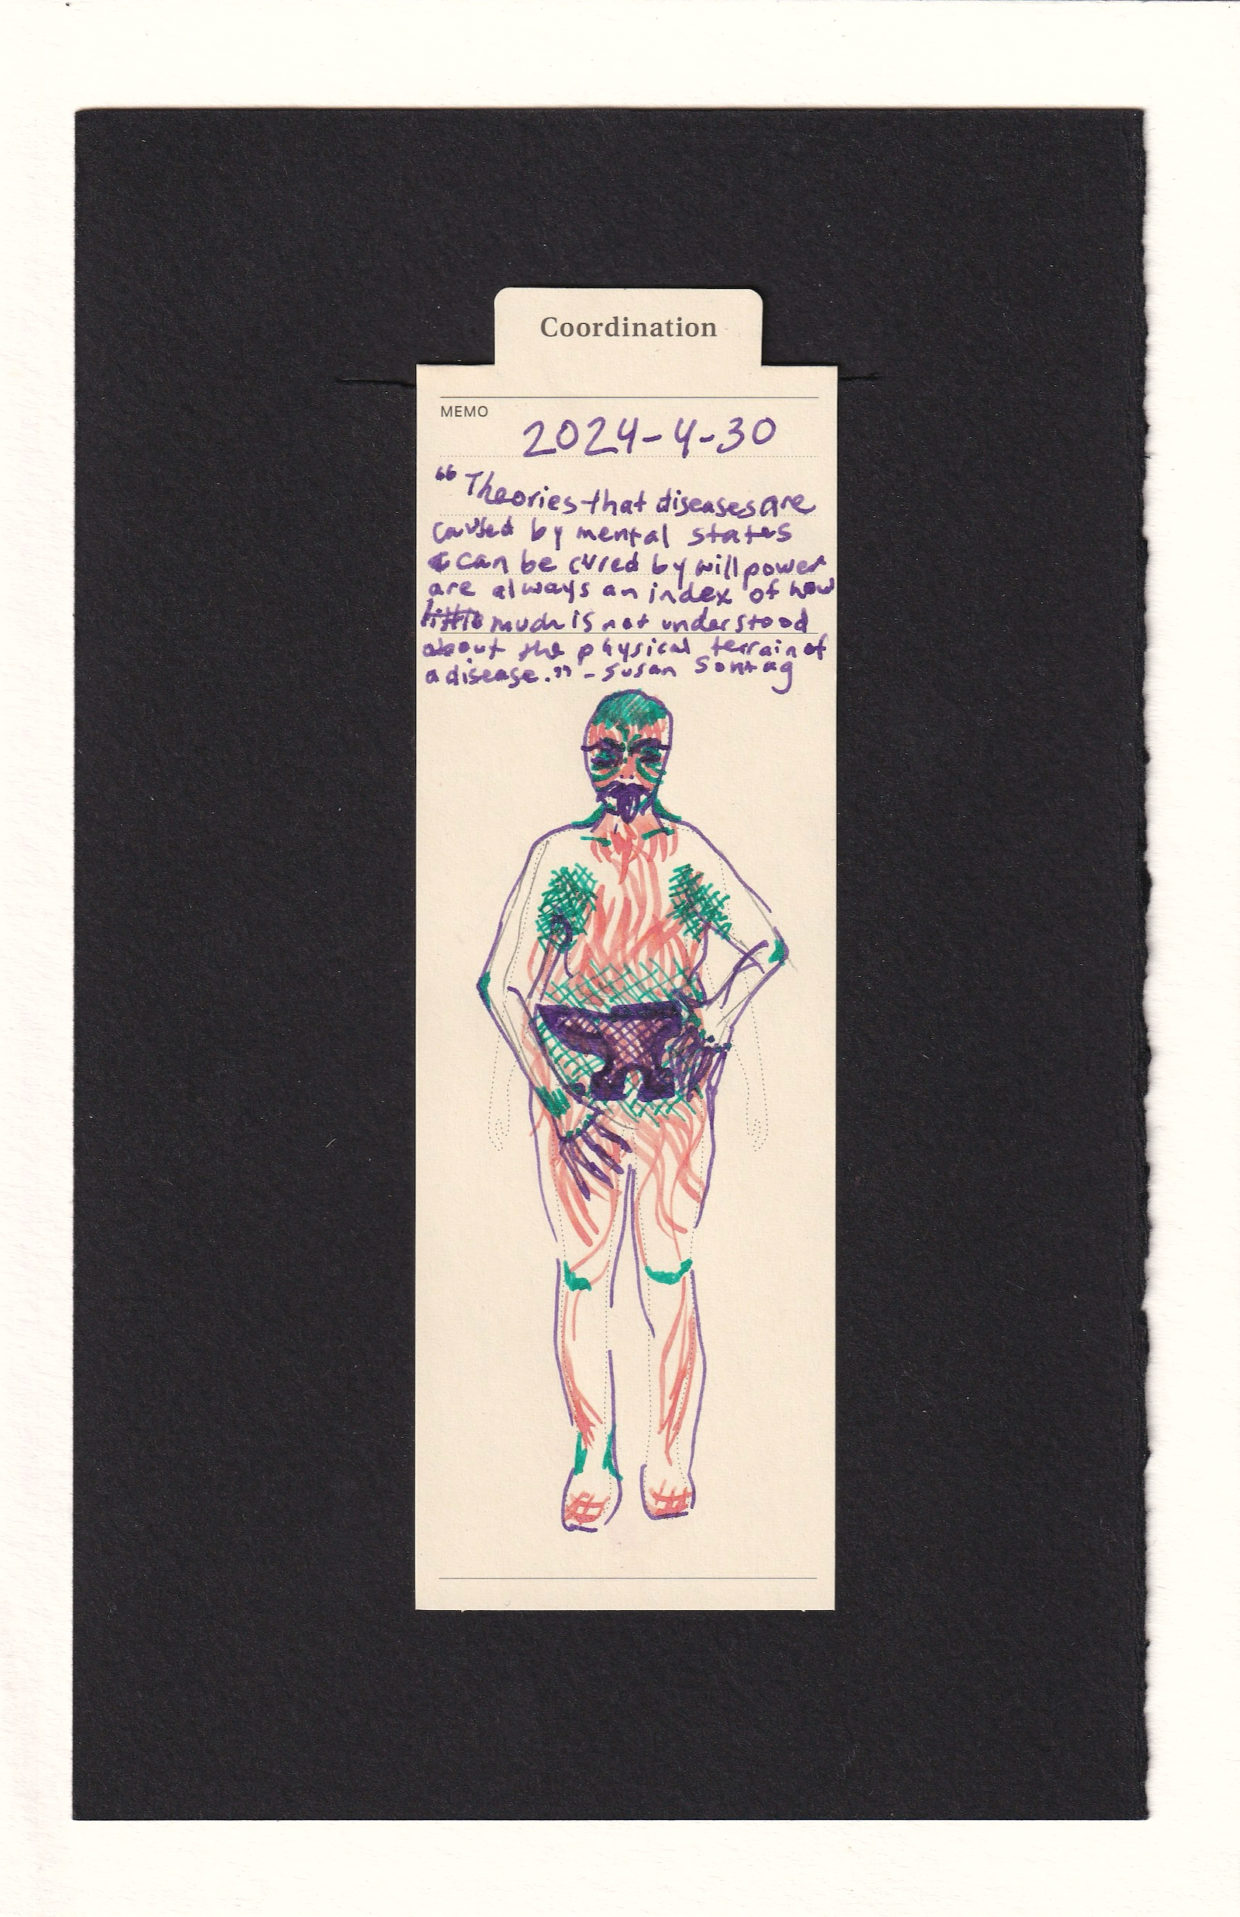 Coordination
MEMO
2024-4-30
"Theories that diseases are
caused by mental states
& can be cured by will power
are always an index of how
little much is not understood
about the physical terrain of
a disease." - Susan Sontag